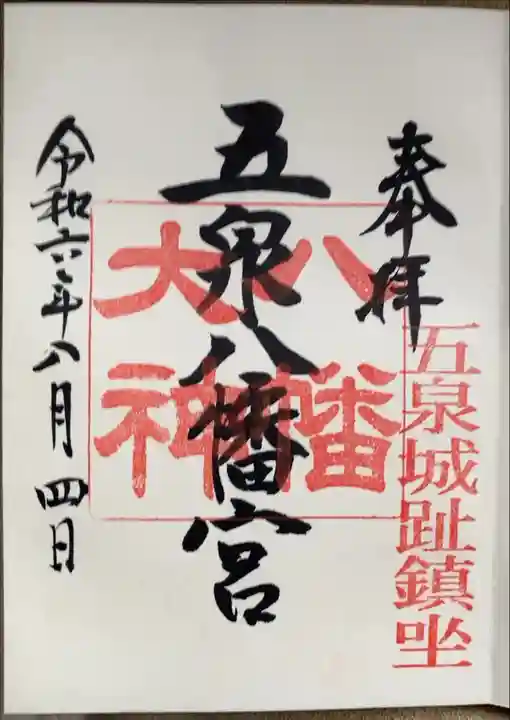 奉拝
五泉城趾鎮坐
五泉八幡宮
八幡
大神
令和六年八月四日